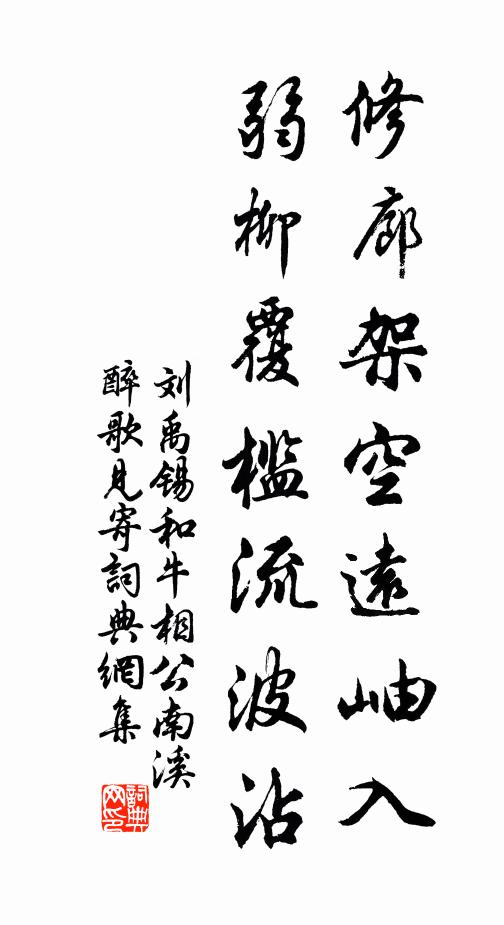 修廊架空遠岫入
弱柳覆檻流波沾
刘禹锡和牛相公南溪
醉歌見寄詞典網集
詞典
网印